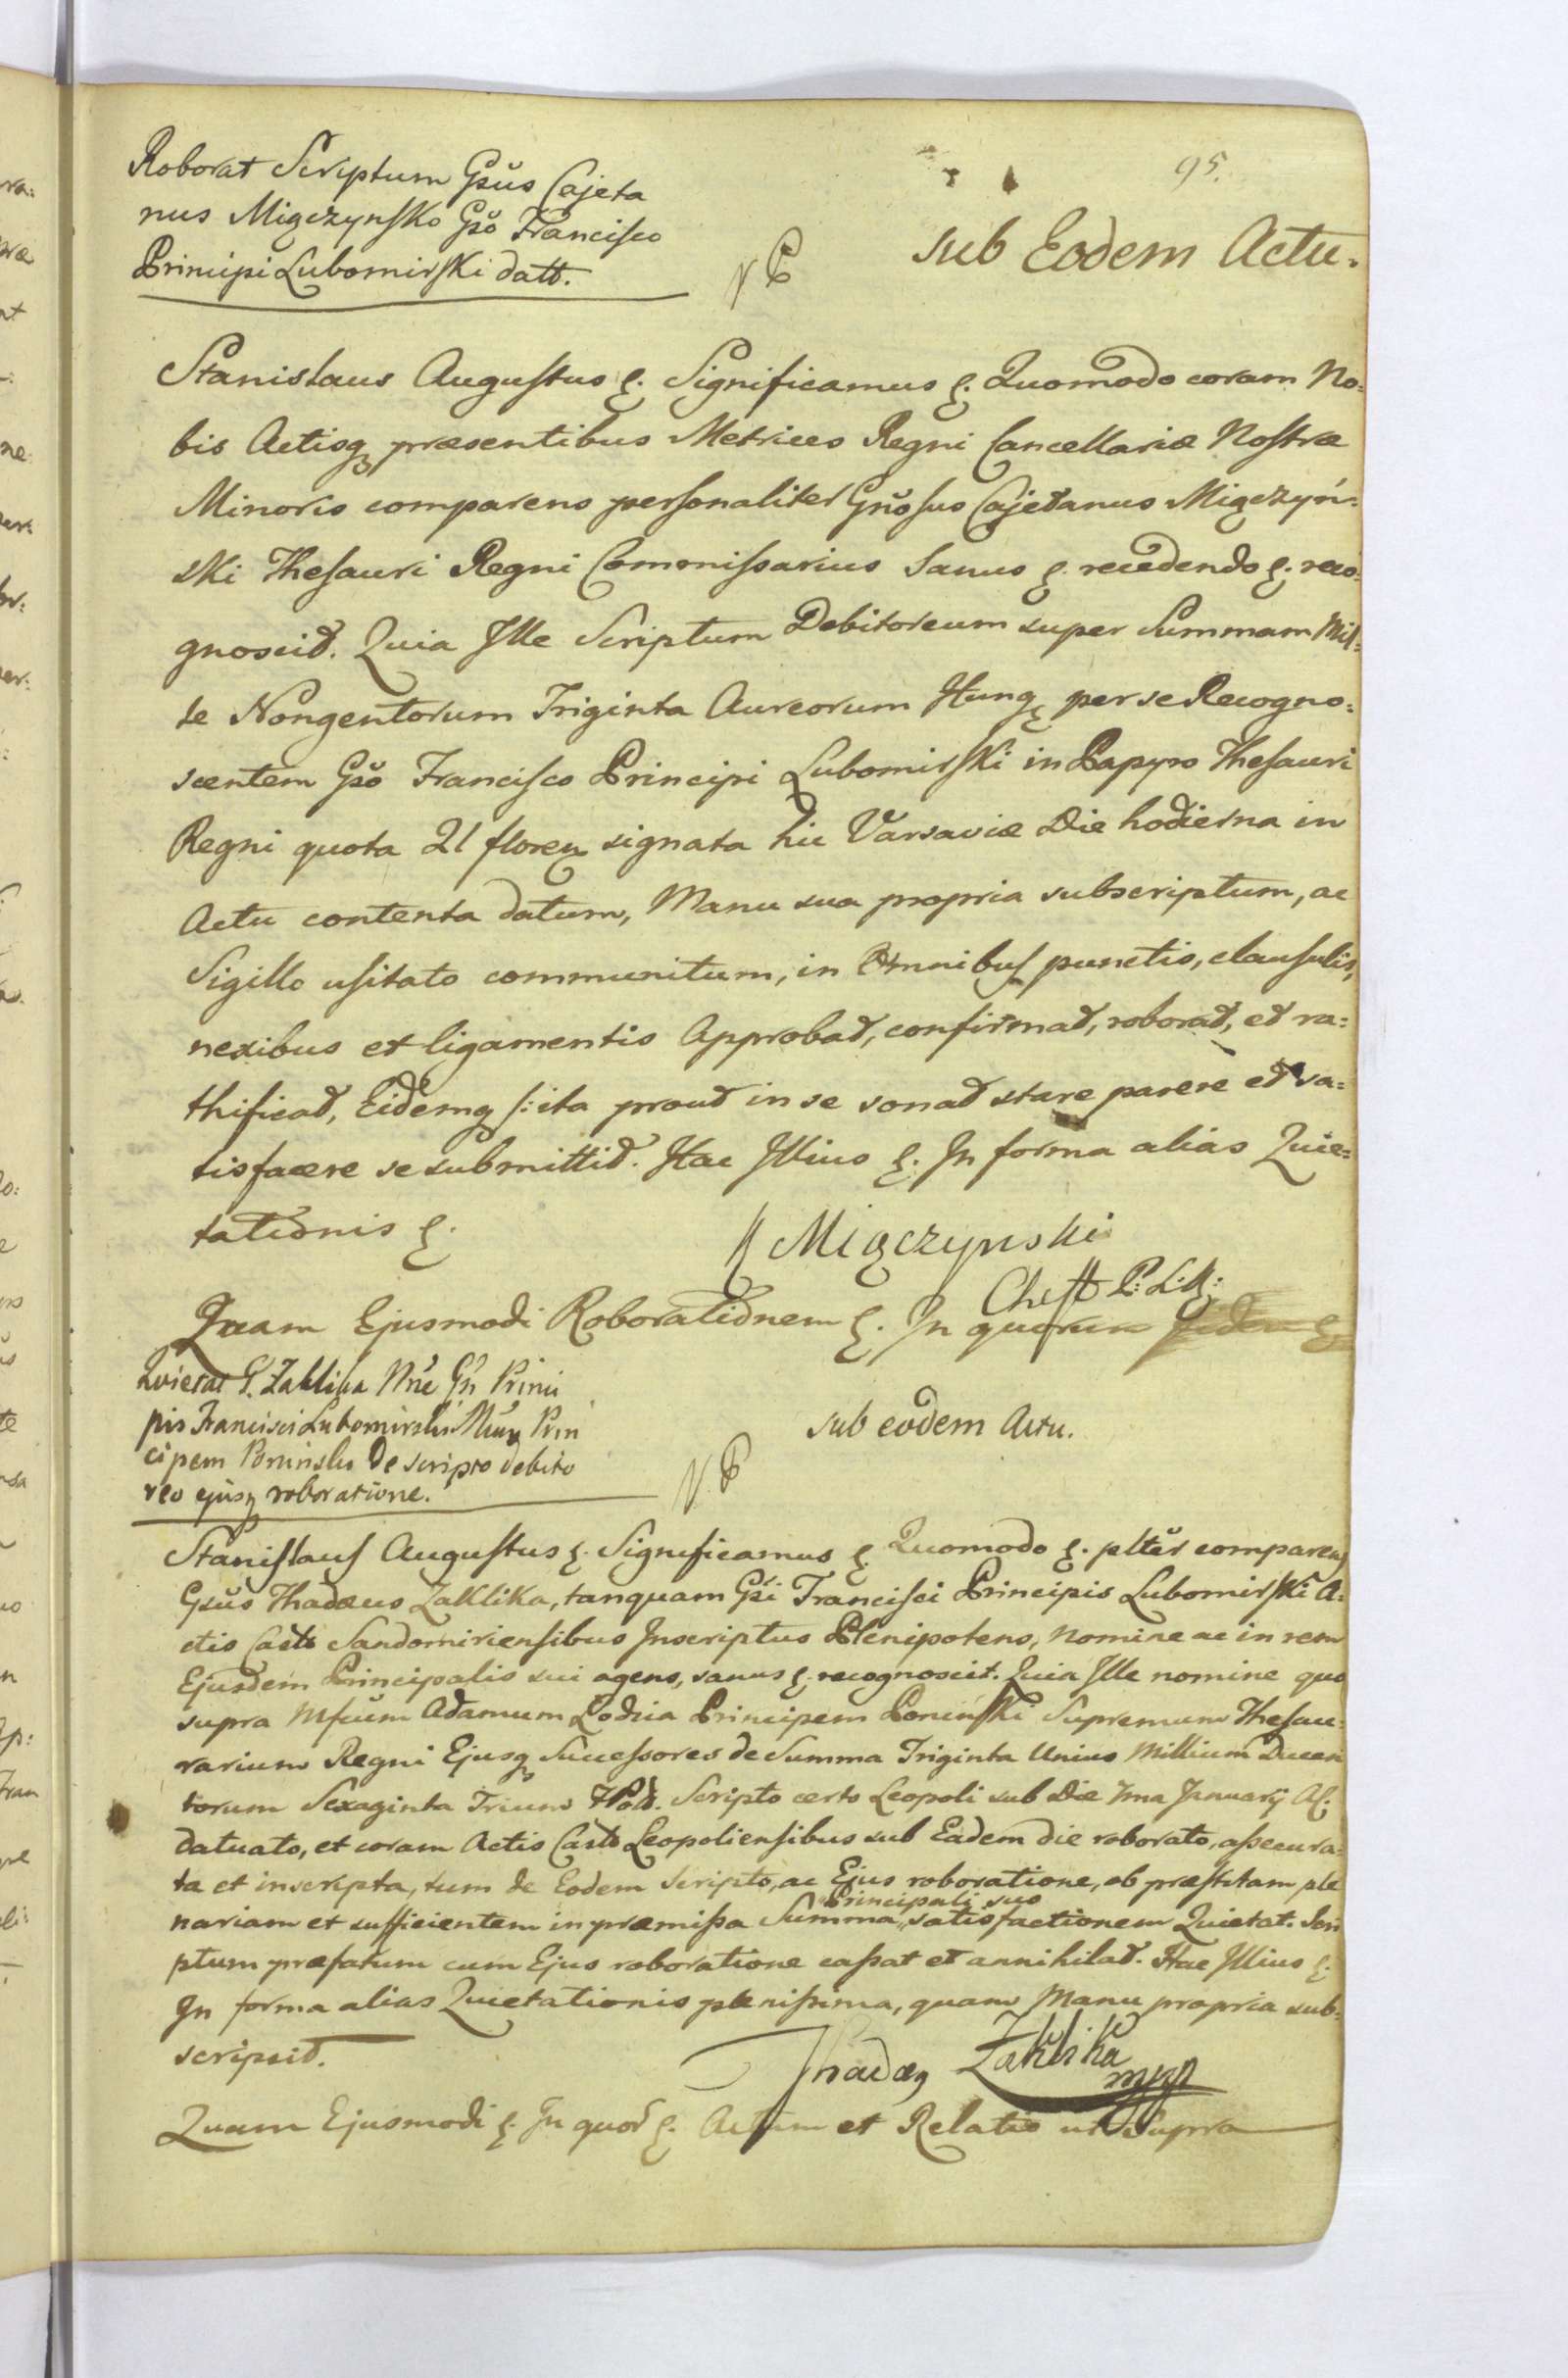 95.
Roborat Scriptum Gsŭs Cajeta
nus Migczynski Gsŏ Francisco
Principi Lubomirski datt.
sub Eodem Actu.
Stanislaus Augustus &. Significamus &. Quomodo coram No:
bis Actisq præsentibus Metrices Regni Cancellariæ Nostræ
Minoris comparens personaliter Gnŏsus Cajetanus Miączyń:
ski Thesauri Regni Commissarius Sanus &. recedendo &. reco:
gnoscit. Quia Ille Scriptum Debitoreum super Summam Mil:
le Nongentorum Triginta Aureorum Hung. per se Recogno:
scentem Gsŏ Francisco Principi Lubomirski in Papyro Thesauri
Regni quota 21 floren signata hic Varsaviæ Die hodierna in
Actu contenta datum, Manu sua propria subscriptum, ac
Sigillo usitato communitum, in Omnibus punctis, clausulis,
nexibus et ligamentis Approbat, confirmat, roborat, et ra:
thificat, Eidemq /: ita prout in se sonat stare parere et sa:
tisfacere se submittit. Hac Illius &. In forma alias Quie:
tationis &.
Miączynski
Quam Ejusmodi Roborationem &. In quorum fidem &
Quietat G. Zaklika Nnĕ Gn̆ Princi
pis Francisci Lubomirski Prin
cipem Poninski De scripto debito
reo ejusq roboratione.
sub eodem Actu.
Stanislaus Augustus &. Significamus & Quomodo &. pltĕr comparens
Gsŭs Thadæus Zaklika, tanquam Gsi Francisci Principis Lubomirski A:
ctis Castr Sandomiriensibus Inscriptus Plenipotens, Nomine ac in rem
Ejusdem Principalis sui agens, sanus &. recognoscit. Quia Ille nomine quo
supra Mfcŭm Adamum Lodzia Principem Poninski Supremum Thesau:
rarium Regni Ejusq Successores de Summa Triginta Unius Millium Ducen
torum Sexaginta Trium FPol. Scripto certo Leopoli sub Die Ima Januarij Af.
datuato, et coram Actis Castr Leopoliensibus sub Eadem die roborato, assecura:
ta et inscripta, tum de Eodem Scripto, ac Ejus roboratione, ob præstitam ple
nariam et sufficientem in præmissa Summa, Principali suo satisfactionem Quietat. Scri
ptum præfatum cum Ejus roboratione cassat et annihilat. Hac Illius &.
In forma alias Quietationis plenissima, quam Manu propria sub:
scripsit.
Thadæq Zaklika
mpp
Quam Ejusmodi &. In quor &. Actum et Relatio ut Supra